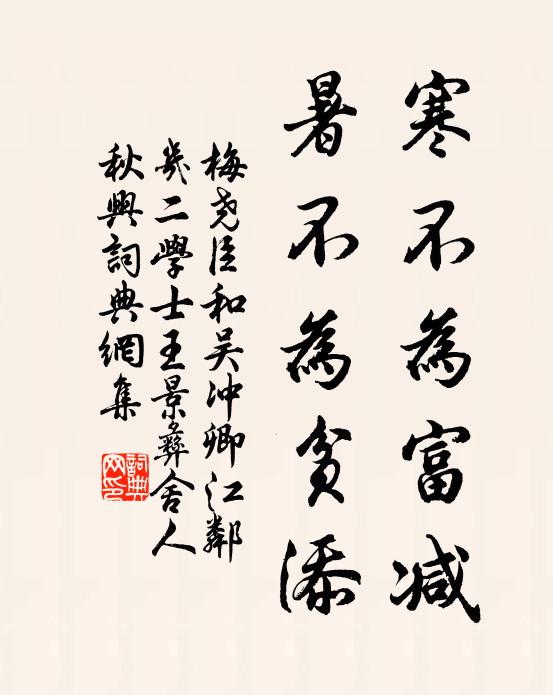 寒不為富減
暑不為貧添
梅堯臣和吴冲卿江鄰
幾二學士王景彝舍人
秋興詞典網集
詞典
网印